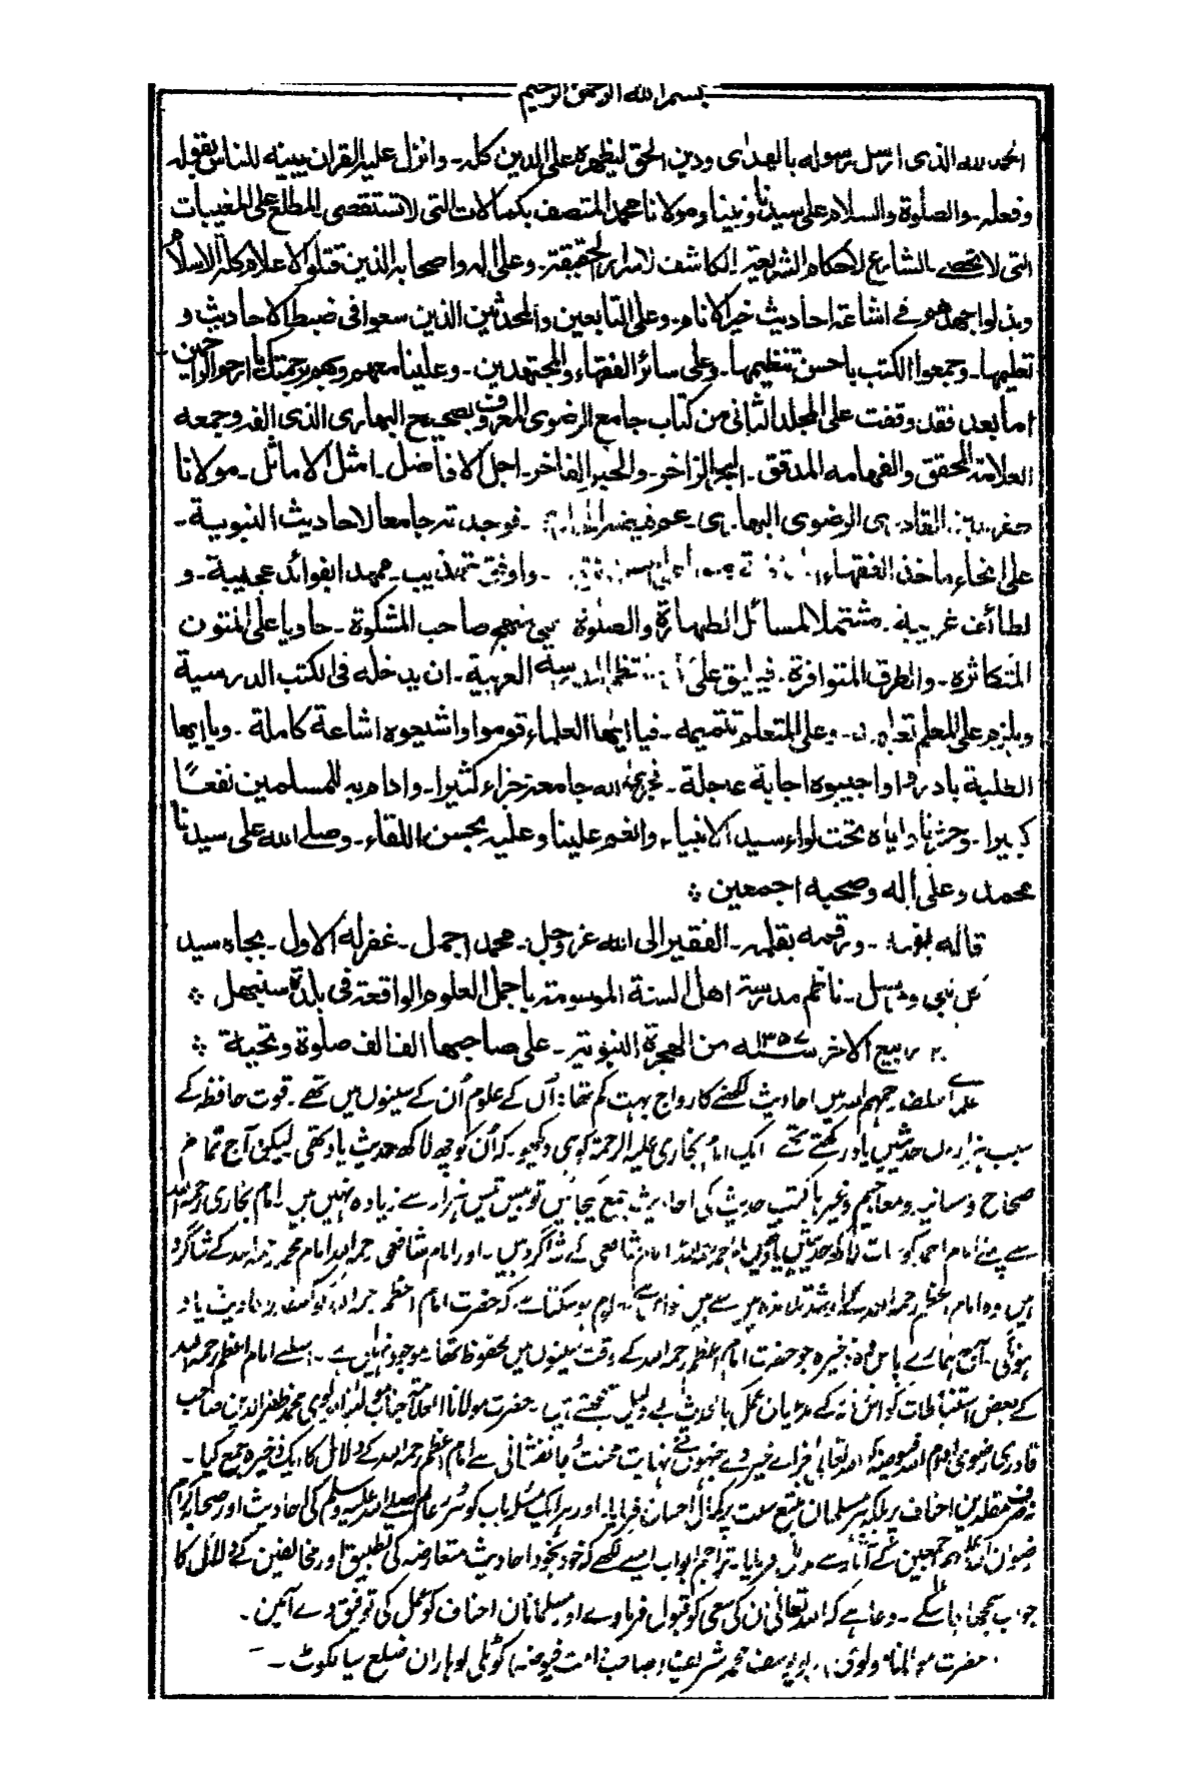 بسم الله الرحمن الرحيم
الحمد لله الذى ارسل رسوله بالهدىٰ ودين الحق ليظهره على الدين كله۔ وانزل عليه القران يبينه للناس بقوله
وفعله۔ والصلوة والسلام على سيدنا ونبينا ومولانا محمد المتصف بكمالات التى لا تستقصى المطلع على المغيبات
التى لا تحصى۔ الشارع لاحكام الشريعة الكاشف لاسرار الحقيقة۔ وعلى اله واصحابه الذين قتلوا لاعلاء كلمة الاسلام
وبذلوا جهدهم فى اشاعة احاديث خير الانام۔ وعلى التابعين والمحدثين الذين سعوا فى ضبط الاحاديث و
تعليمها۔ وجمعوا الكتب باحسن تنظيمها۔ وعلى سائر الفقهاء والمجتهدين۔ وعلينا معهم وبهم برحمتك يا ارحم الراحمين
اما بعد فقد وقفت على المجلد الثانى من كتاب جامع الرضوى المعروف بصحيح البهارى الذى الفه وجمعه
العلامة المحقق والفهامه المدقق۔ البحر الزاخر۔ والحبر الفاخر۔ اجل الافاضل۔ امثل الاماثل۔ مولانا
القادرى الرضوى البهارى۔ عم فيضه ۔ فوجدته جامعا لاحاديث النبوية۔
على انحاء ماخذ الفقهاء ۔ واوثق تهذيب۔ ممهد الفوائد عجيبة۔ و
لطائف غريبه۔ مشتملا لمسائل الطهارة والصلوة على نهج صاحب المشكوة۔ حاويا على المتون
المتكاثره۔ والطرق المتوافرة۔ فيليق على المدرسة العربية۔ ان يدخله فى الكتب الدرسية
ويلزم على المعلم تعليمه۔ وعلى المتعلم تتميمه۔ فيا ايها العلماء قوموا واشيعوه اشاعة كاملة۔ ويا ايها
الطلبة بادروا واجيبوه اجابة عاجلة۔ فجزى الله جامعه جزاء كثيرا۔ وادام به للمسلمين نفعًا
كبيرا۔ وحشرنا واياه تحت لواء سيد الانبياء۔ وانعم علينا وعليه بحسن اللقاء۔ وصلى الله على سيدنا
محمد وعلى اله وصحبه اجمعين ؞
قاله بفمه۔ ورقمه بقلمه۔ الفقير الى الله عز وجل۔ محمد اجمل۔ غفر له الاول۔ بجاه سيد
كل نبى ومرسل۔ ناظم مدرسة اهل السنة الموسومة باجمل العلوم الواقعة فى بلدة سنبهل ؞
ربيع الاخر سنه ١٣٥٧ من الهجرة النبوية۔ على صاحبها الف الف صلوة وتحية ؞
علمائے سلف رحمہم اللہ میں احادیث لکھنے کا رواج بہت کم تھا: اُن کے علوم اُن کے سینوں میں تھے۔ قوت حافظہ کے
سبب ہزاروں حدیثیں یاد رکھتے تھے ایک امام بخاری علیہ الرحمۃ کو ہی دیکھو۔ کہ اُن کو چھ لاکھ حدیث یاد تھی لیکن آج تمام
صحاح و مسانید و معاجیم وغیرہا کتب حدیث کی احادیث جمع کیجائیں تو بیس تیس ہزار سے زیادہ نہیں ہیں۔ امام بخاری رحمہ اللہ
سے پہلے امام احمد کو سات لاکھ حدیثیں یاد تھیں امام احمد رحمہ اللہ امام شافعی کے شاگرد ہیں۔ اور امام شافعی رحمہ اللہ امام محمد رحمہ اللہ کے شاگرد
ہیں وہ امام اعظم رحمہ اللہ کے ارشد تلامذہ میں سے ہیں معلوم ہو سکتا ہے۔ کہ حضرت امام اعظم رحمہ اللہ کو کسقدر احادیث یاد
ہونگی۔ آج ہمارے پاس وہ ذخیرہ جو حضرت امام اعظم رحمہ اللہ کے وقت سینوں میں محفوظ تھا۔ موجود نہیں ہے۔ اسلئے امام اعظم رحمہ اللہ
کے بعض استنباطات کو اس زمانہ کے مدعیان عمل بالحدیث بے دلیل سمجھتے ہیں۔ حضرت مولانا العلامۃ جناب مولانا مولوی محمد ظفر الدین صاحب
قادری رضوی ادام اللہ فیوضہ کو اللہ تعالیٰ جزائے خیر دے جنہوں نے نہایت محنت و جانفشانی سے امام اعظم رحمہ اللہ کے دلائل کا ایک ذخیرہ جمع کیا۔
نہ صرف مقلدین احناف پر بلکہ ہر مسلمان متبع سنت پر کمال احسان فرمایا۔ اور ہر ایک مسئلہ باب کو سرور عالم صلے اللہ علیہ وسلم کی احادیث اور صحابہ کرام
رضوان اللہ علیہم اجمعین کے آثار سے مدلل فرمایا۔ تراجم ابواب ایسے لکھے کہ خود بخود احادیث متعارضہ کی تطبیق اور مخالفین کے دلائل کا
جواب سمجھا جا سکے۔ دعا ہے کہ اللہ تعالیٰ ان کی سعی کو قبول فرماوے اور مسلمانان احناف کو عمل کی توفیق دے آمین۔
حضرت مولانا مولوی ابو یوسف محمد شریف صاحب دامت فیوضہ کوٹلی لوہاران ضلع سیالکوٹ۔